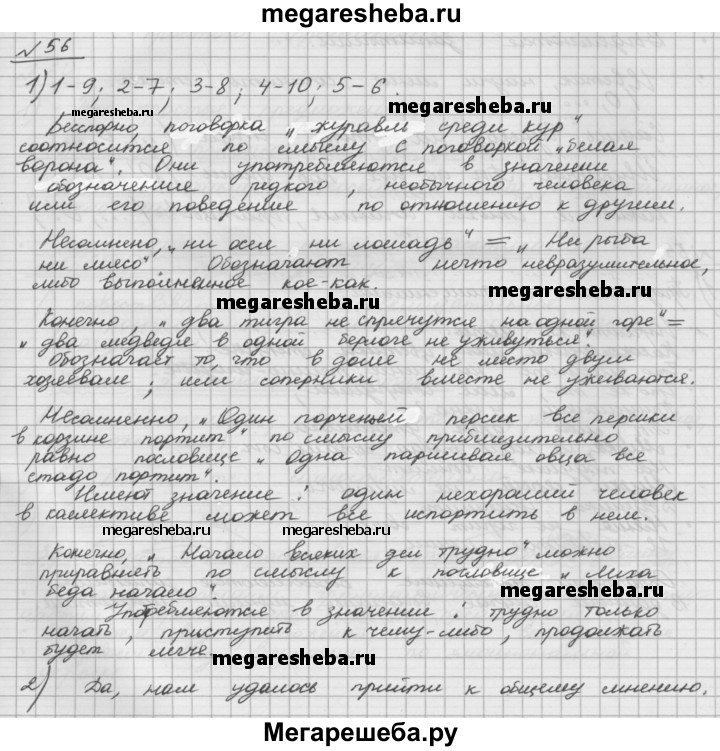 megaresheba.ru
№56
1) 1-9; 2-7; 3-8; 4-10; 5-6.
megaresheba.ru
Бесспорно, поговорка „журавль среди кур“
соотносится по смыслу с поговоркой „белая
ворона“. Они употребляются в значении
обозначение редкого, необычного человека
или его поведение по отношению к другим.
Несомнено, „ни осел ни лошадь“ = „Ни рыба
ни мясо“. Обозначают нечто невразумительное,
либо выполненное кое-как.
megaresheba.ru
megaresheba.ru
Конечно, „два тигра не спрячутся на одной горе“ =
„два медведя в одной берлоге не уживуться“.
Обозначает то, что в доме не место двум
хозяевам; или соперники вместе не уживаются.
Несомненно, „Один порченый персик все персики
в корзине портит“ по смыслу приблизительно
равно пословице „Одна паршивая овца все
стадо портит“.
Имеют значение: один нехороший человек
в коллективе может все испортить в нем.
megaresheba.ru megaresheba.ru
Конечно, „Начало всяких дел трудно“ можно
приравнять по смыслу к пословице „Лиха
беда начало“.
megaresheba.ru
Употребляются в значении: трудно только
начать, приступить к чему-либо, продолжать
будет легче
megaresheba.ru
2) Да, нам удалось прийти к общему мнению.
Мегарешеба.ру